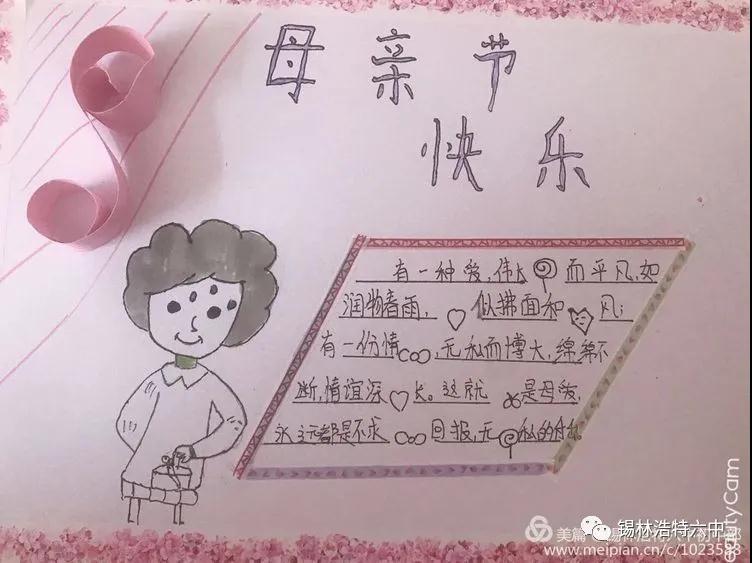 母亲节
快乐
有一种爱,伟大而平凡,如
润物春雨,似拂面和风;
有一份情,无私而博大,绵绵不
断,情谊深长。这就是母爱,
永远都是不求回报,无私的付出。
锡林浩特六中
美篇
www.meipian.cn/c/1023583
eautyCam